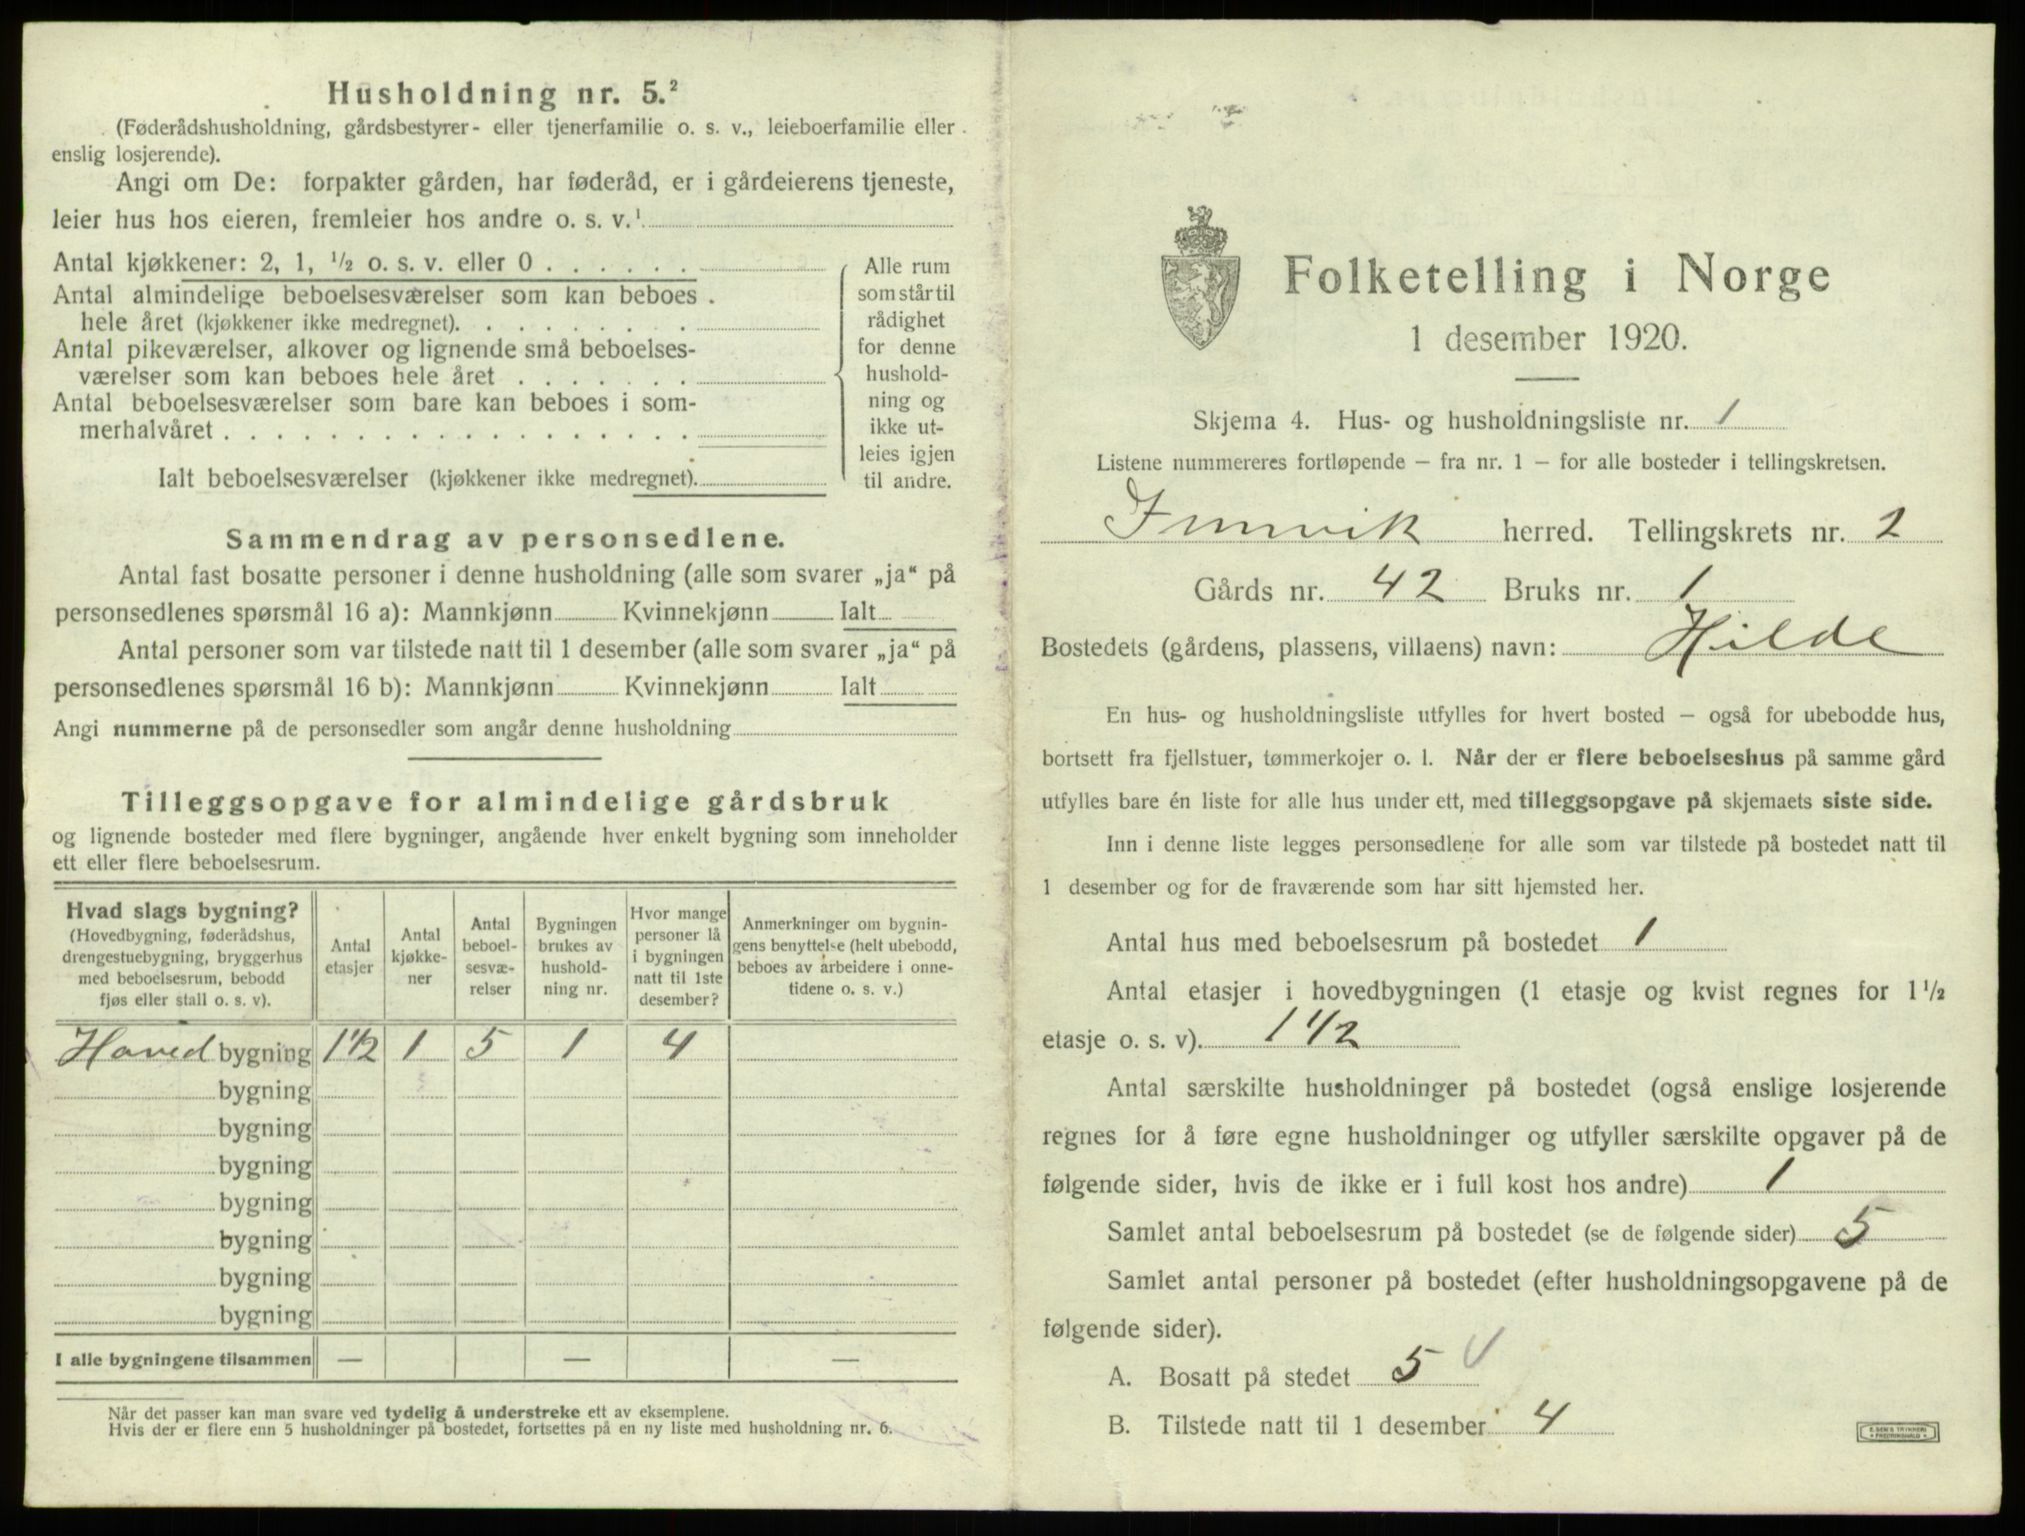 Husholdning nr. 5.²
(Føderådshusholdning, gårdsbestyrer- eller tjenerfamilie o. s. v., leieboerfamilie eller
enslig losjerende).
Angi om De: forpakter gården, har føderåd, er i gårdeierens tjeneste,
leier hus hos eieren, fremleier hos andre o. s. v.¹
Antal kjøkkener: 2, 1, ½ o. s. v. eller 0 . . . . . .
Antal almindelige beboelsesværelser som kan beboes .
hele året (kjøkkener ikke medregnet). . . . . . . . .
Antal pikeværelser, alkover og lignende små beboelses-
værelser som kan beboes hele året . . . . . . .
Antal beboelsesværelser som bare kan beboes i som-
merhalvåret . . . . . . . . . . . . . . . . . .
Ialt beboelsesværelser (kjøkkener ikke medregnet).
Alle rum
som står til
rådighet
for denne
hushold-
ning og
ikke ut-
leies igjen
til andre.
Sammendrag av personsedlene.
Antal fast bosatte personer i denne husholdning (alle som svarer „ja“ på
personsedlenes spørsmål 16 a): Mannkjønn Kvinnekjønn Ialt
Antal personer som var tilstede natt til 1 desember (alle som svarer „ja“ på
personsedlenes spørsmål 16 b): Mannkjønn Kvinnekjønn Ialt
Angi nummerne på de personsedler som angår denne husholdning
Tilleggsopgave for almindelige gårdsbruk
og lignende bosteder med flere bygninger, angående hver enkelt bygning som inneholder
ett eller flere beboelsesrum.
Hvad slags bygning?
(Hovedbygning, føderådshus,
drengestuebygning, bryggerhus
med beboelsesrum, bebodd
fjøs eller stall o. s. v).
Antal
etasjer
Antal
kjøkke-
ner
Antal
beboel-
sesvæ-
relser
Bygningen
brukes av
hushold-
ning nr.
Hvor mange
personer lå
i bygningen
natt til 1ste
desember?
Anmerkninger om bygnin-
gens benyttelse (helt ubebodd,
beboes av arbeidere i onne-
tidene o. s. v.)
Hoved bygning 1½ 1 5 1 4
bygning
bygning
bygning
bygning
bygning
bygning
bygning
I alle bygningene tilsammen — — —
Når det passer kan man svare ved tydelig å understreke ett av eksemplene.
Hvis der er flere enn 5 husholdninger på bostedet, fortsettes på en ny liste med husholdning nr. 6.
Folketelling i Norge
1 desember 1920.
Skjema 4. Hus- og husholdningsliste nr. 1
Listene nummereres fortløpende — fra nr. 1 — for alle bosteder i tellingskretsen.
Innvik herred. Tellingskrets nr. 2
Gårds nr. 42 Bruks nr. 1
Bostedets (gårdens, plassens, villaens) navn: Hilde
En hus- og husholdningsliste utfylles for hvert bosted — også for ubebodde hus,
bortsett fra fjellstuer, tømmerkojer o. l. Når der er flere beboelseshus på samme gård
utfylles bare én liste for alle hus under ett, med tilleggsopgave på skjemaets siste side.
Inn i denne liste legges personsedlene for alle som var tilstede på bostedet natt til
1 desember og for de fraværende som har sitt hjemsted her.
Antal hus med beboelsesrum på bostedet 1
Antal etasjer i hovedbygningen (1 etasje og kvist regnes for 1½
etasje o. s. v). 1½
Antal særskilte husholdninger på bostedet (også enslige losjerende
regnes for å føre egne husholdninger og utfyller særskilte opgaver på de
følgende sider, hvis de ikke er i full kost hos andre) 1
Samlet antal beboelsesrum på bostedet (se de følgende sider) 5
Samlet antal personer på bostedet (efter husholdningsopgavene på de
følgende sider).
A. Bosatt på stedet 5
B. Tilstede natt til 1 desember 4